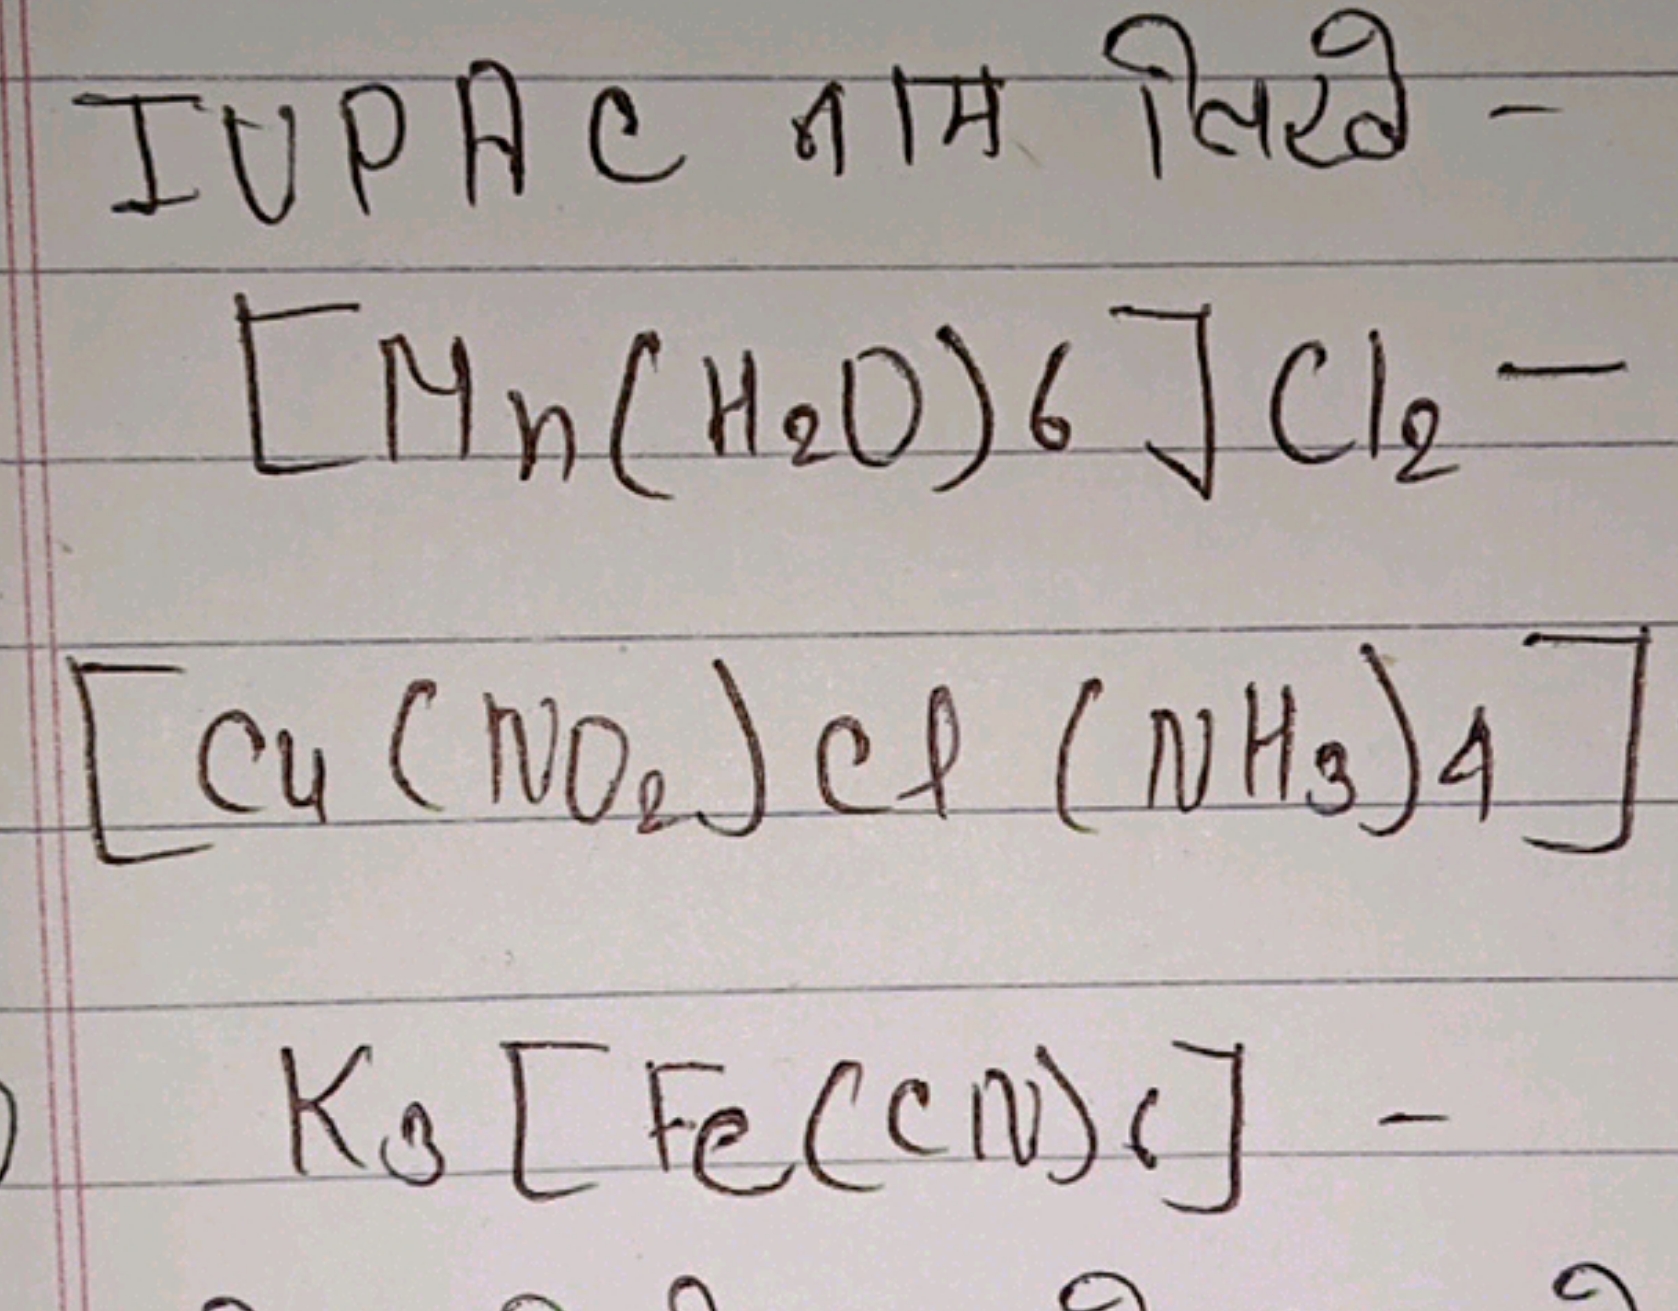 IUPAC नाम लिखे -
[Mn(H2O)6]Cl2 -
[Cu(NO2)Cl(NH3)4]
K3[Fe(CN)6] -